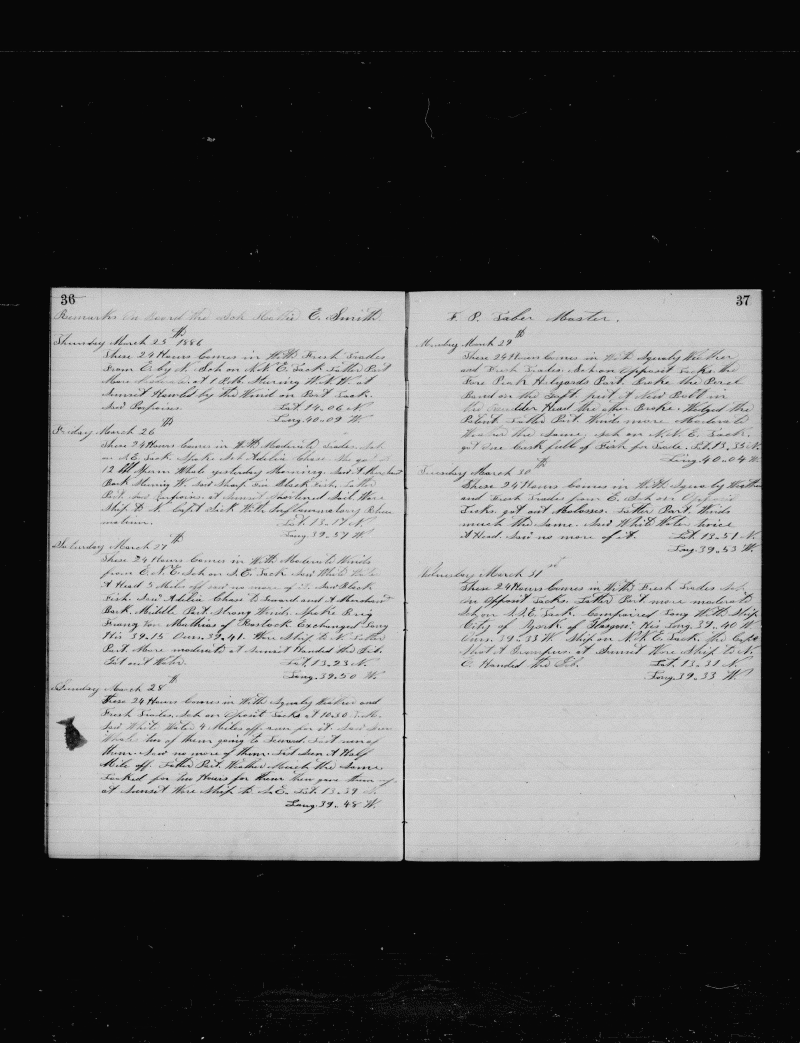 36
Remarks on board the Sch E. Smith
Thursday March 25th 1886
These 24 Hours Comes in With Fresh Trades
From E by N. Sch on N.N.E. Tack Latter Part
More Moderate at 1 P.M. Steering W.N.W. at
Sunset Hauled by the Wind on Port Tack.
Saw Porpoises. Lat. 14-06 N
Long. 40-09 W.
Friday March 26th
These 24 Hours Comes in With Moderate Trades. Sch
on S.E. Tack. Spoke Sch Adelia Chase She got a
12 Bbl Sperm Whale yesterday Morning. Saw A
Bark Steering W. Saw Black Fish. Latter
Part Saw Porpoises. at Sunset Shortened Sail Wore
Ship to N. Capt Sick With Inflammatory Rheu
matism. Lat. 13-17 N
Long. 39-57 W
Saturday March 27
These 24 Hours Comes in With Moderate Winds
from E.N.E. Sch on S.E. Tack Saw White Water
A Head 3 Miles off saw no more of it. Saw Black
Fish. Saw Adelia Chase to Leward and A Merchant
Bark. Middle Part Strong Winds. Spoke Brig
Franz Von Mathias of Rostock Exchanged Long
His 39-15 Ours. 39-41. Wore Ship to N. Latter
Part More moderate at Sunset Handed the Jib.
Got out Water. Lat. 13-23 N
Long. 39-50 W.
Sunday March 28th
These 24 Hours Comes in With Squaly Weather and
Fresh Trades. Sch on Oposit Tacks at 10-30
Saw White Water 4 Miles off run for it. Saw
Whale two of them going to Leward. Lost run of
them. Saw no more of them. Half
Mile off. Latter Part Weather Much the Same
Tacked for two Hours for them then gave them up
at Sunset Wore Ship to S.E. Lat. 13-39 N.
Long. 39-48 W.
37
F. P. Taber Master.
Monday March 29th
These 24 Hours Comes in With Squaly Weather
and Fresh Trades. Sch on Opposit Tacks. the
Fore Peak Halyards Part. Broke the Parel
Band on the Gaff. put A New Bolt in
the Rudder Head the other Broke. Wedged the
Latter Part Winds more Moderate
Weather the Same. Sch on N.N.E. Tack.
got one Cask full of for Trade. Lat. 13-35 N.
Long. 40-04 W.
Tuesday March 30th
These 24 Hours Comes in With Squaly Weather
and Fresh Trades from E. Sch on Opposit
Tacks. got out Molasses. Latter Part Winds
much the Same. Saw White Water twice
A Head. Saw no more of it. Lat. 13-51 N
Long. 39-53 W.
Wednesday March 31st
These 24 Hours Comes in With Fresh Trades Sch
on Opposit Tacks. Latter Part more moderate
Sch on S.S.E. Tack. Compaired Long With Ship
City of York of Glasgow. His Long. 39-40 W
Ours. 39-33 W. Ship on N.N.E. Tack. the Capt
Shot A Grampus. at Sunset Wore Ship to N.
& Handed the Jib. Lat. 13-31 N
Long. 39-33 W